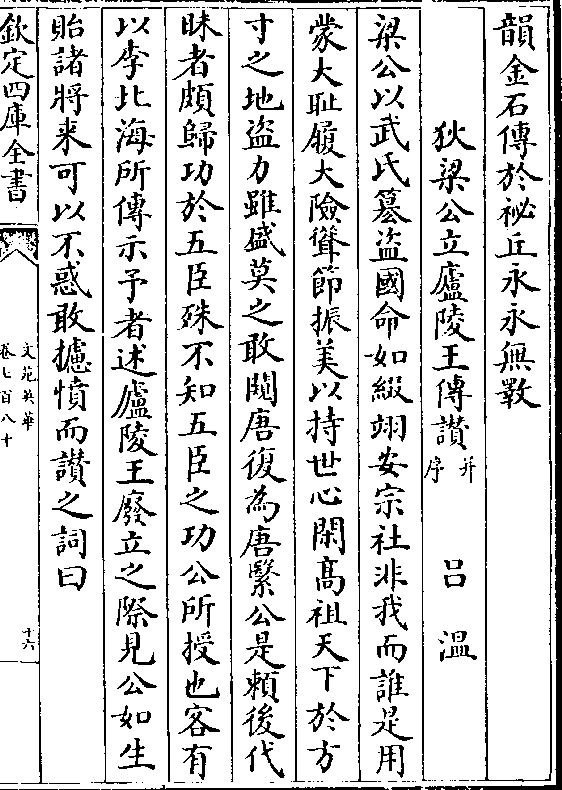 韻金石傳於祕丘永永無斁
狄梁公立廬陵王傳讃并序 吕溫
梁公以武氏簒盗國命如綴翊安宗社非我而誰是用
蒙大耻履大險聳節振美以持世心閑髙祖天下於方
寸之地盗力雖盛莫之敢闚唐復為唐繄公是賴後代
昧者頗歸功於五臣殊不知五臣之功公所授也客有
以李北海所傳示予者述廬陵王廢立之際見公如生
貽諸將来可以不惑敢攄憤而讃之詞曰
欽定四庫全書
文苑英華
卷七百八十
十六